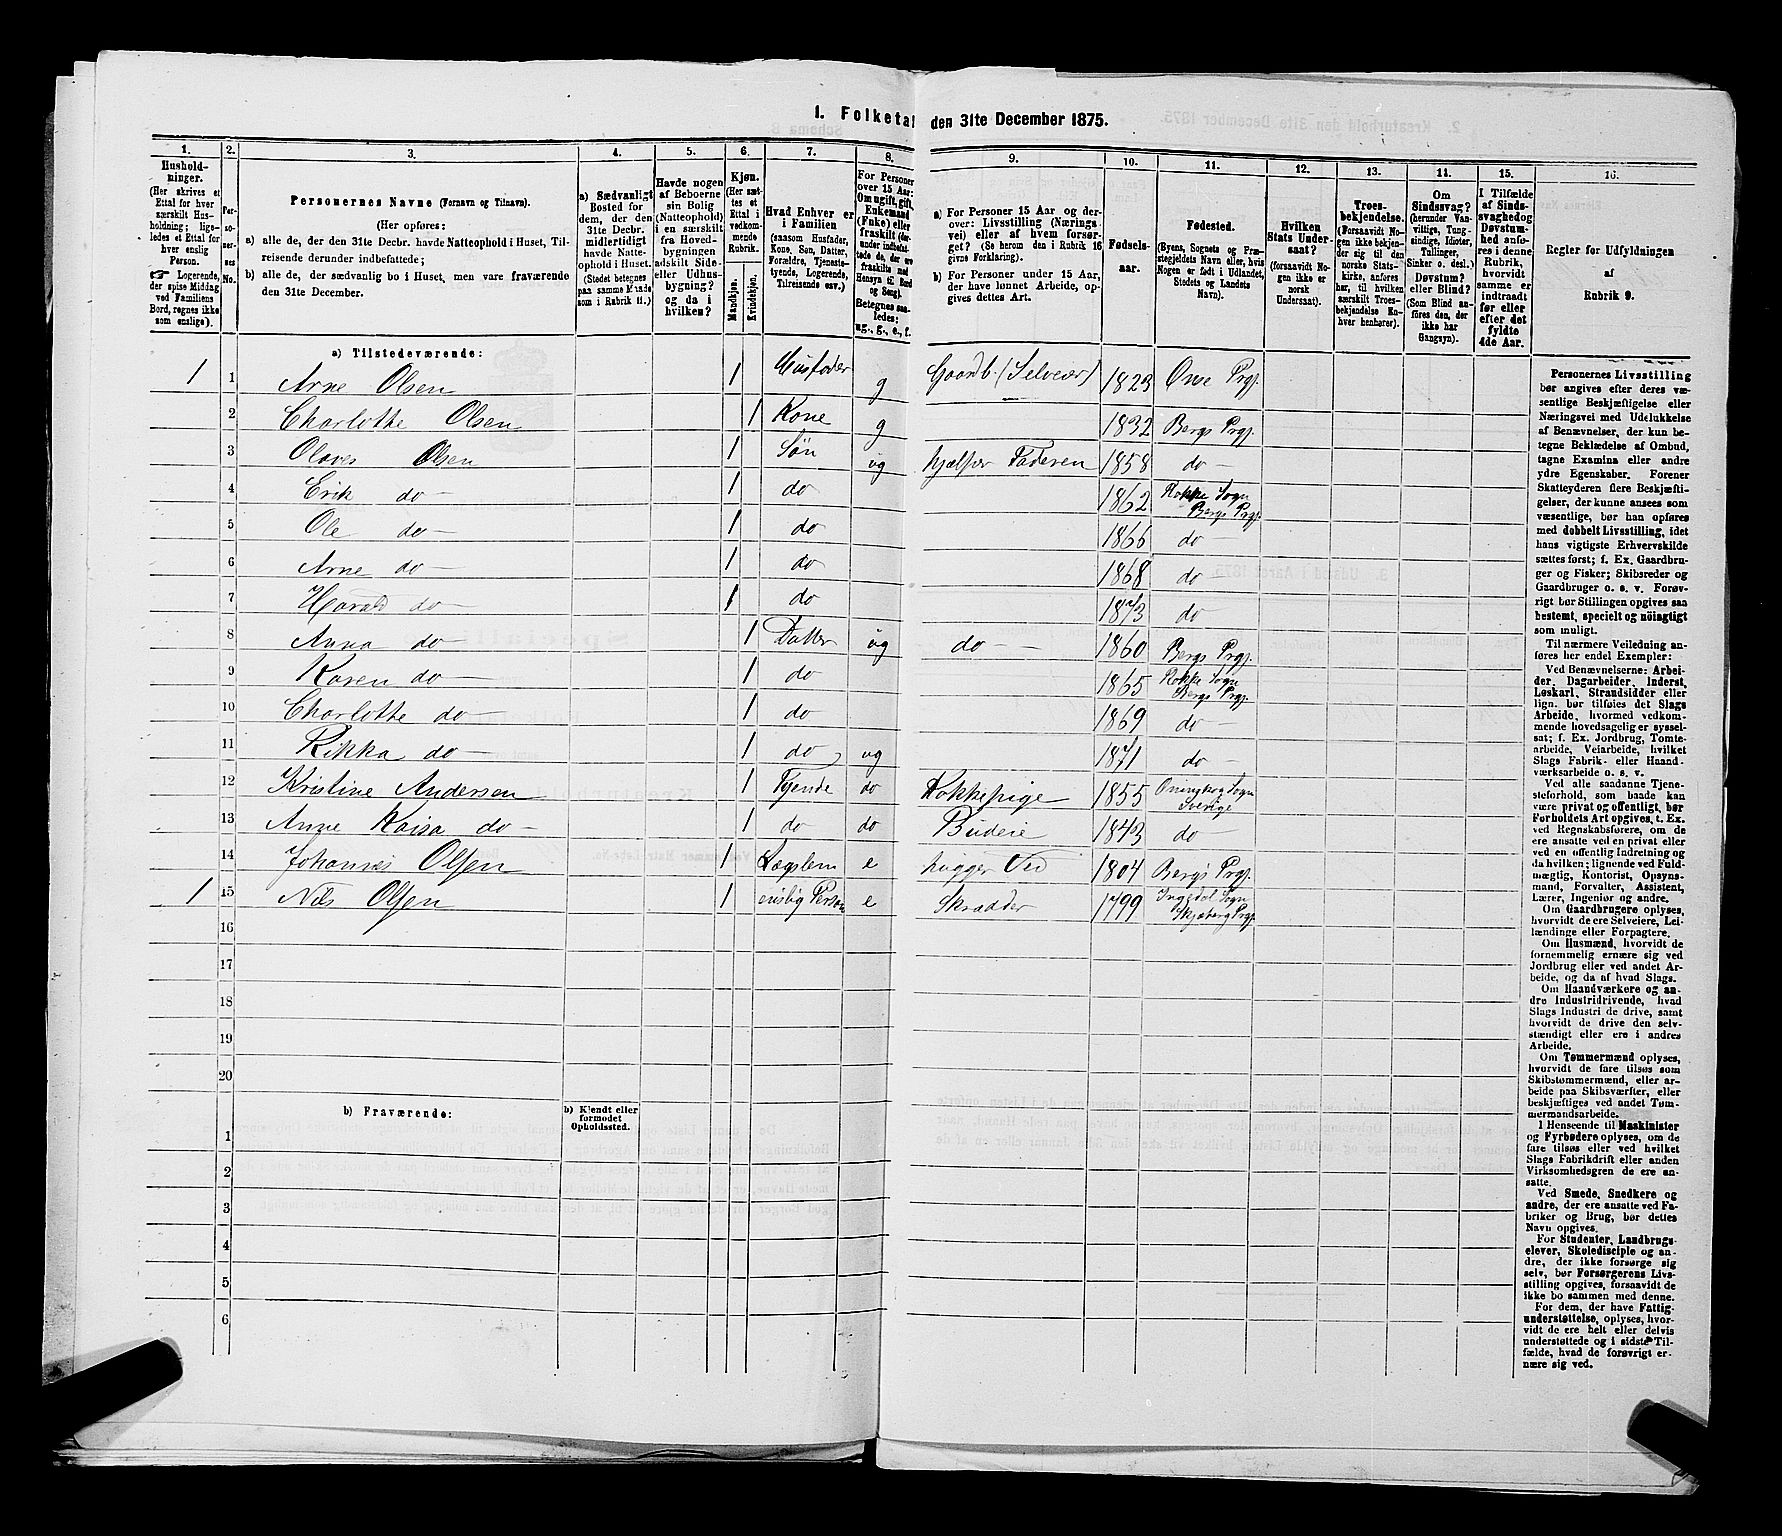 1. Folketal den 31te December 1875.
1.
Hushold-
ninger.
(Her skrives et
Ettal for hver
særskilt Hus-
holdning; lige-
ledes et Ettal for
hver enslig
Person.
☛ Logerende,
der spise Middag
ved Familiens
Bord, regnes ikke
som enslige).
2.
Per-
soner-
nes
No.
3.
Personernes Navne (Fornavn og Tilnavn).
(Her opføres:
a) alle de, der den 31te Decbr. havde Natteophold i Huset, Til-
reisende derunder indbefattede;
b) alle de, der sædvanlig bo i Huset, men vare fraværende
den 31te December.
4.
a) Sædvanligt
Bosted for
dem, der den
31te Decbr.
midlertidigt
havde Natte-
ophold i Huset.
(Stedet betegnes
paa samme Maade
som i Rubrik 11.)
5.
Havde nogen
af Beboerne
sin Bolig
(Natteophold)
i en særskilt
fra Hoved-
bygningen
adskilt Side-
eller Udhus-
bygning?
og da i
hvilken?
6.
Kjøn.
(Her sæt-
tes et
Ettal i
vedkom-
mende
Rubrik.
Mandkjøn.
Kvindekjøn.
7.
Hvad Enhver er
i Familien
(saasom Husfader,
Kone, Søn, Datter,
Forældre, Tjeneste-
tyende, Logerende,
Tilreisende osv.)
8.
For Personer
over 15 Aar:
Om ugift, gift,
Enkemand
(Enke) eller
fraskilt
Betegnes saa-
ledes:
ug., g., e., f.
9.
a) For Personer 15 Aar og der-
over: Livsstilling (Nærings-
vei) eller af hvem forsør-
get? (Se herom den i Rubrik 16
givne Forklaring).
b) For Personer under 15 Aar,
der have lønnet Arbeide, op-
gives dettes Art.
10.
Fødsels-
aar.
11.
Fødested.
(Byens, Sognets og Præ-
stegjeldets Navn eller, hvis
Nogen er født i Udlandet,
Stedets og Landets
Navn).
12.
Hvilken
Stats Under-
saat?
(forsaavidt No-
gen ikke er
norsk
Undersaat).
13.
Troes-
bekjendelse.
(Forsaavidt No-
gen ikke bekjen-
der sig til den
norske Stats-
kirke, anføres
her, til hvilken
særskilt Troes-
bekjendelse En-
hver henhører).
14.
Om
Sindssvag?
(herunder Van-
vittige, Tung-
sindige, Idioter,
Tullinger,
Sinker o. desl.)
Døvstum?
eller Blind?
(Som Blind an-
føres den, der
ikke har
Gangsyn).
15.
I Tilfælde
af Sinds-
svaghed og
Døvstum-
hed anfø-
res i denne
Rubrik,
hvorvidt
samme er
indtraadt
før eller
efter det
fyldte
4de Aar.
16.
Regler for Udfyldningen
af
Rubrik 9.
a) Tilstedeværende:
1 1 Arne Olsen 1 Husfader g Gaardb. (Selveier) 1823 Onsø Prgj.
2 Charlotte Olsen 1 Kone g 1832 Bergs Prgj.
3 Olaves Olsen 1 Søn ug hjælper Faderen 1858 do —
4 Erik do — 1 do 1862 Rokke Sogn Bergs Prgj.
5 Ole do — 1 do 1866 do —
6 Arne do — 1 do 1868 do —
7 Harald do — 1 do 1873 do
8 Anna do 1 Datter ug do — 1860 Bergs Prgj.
9 Karen do — 1 do 1865 Rokke Sogn Bergs Prgj.
10 Charlotte do — 1 do 1869 do —
11 Rikka do — 1 do ug 1871 do —
12 Kristine Andersen 1 Tjende do Kokkepige 1855 Sogn Sverige
13 Anne Kaisa do — 1 do do Budeie 1843 do —
14 Johannes Olsen 1 Lægslem e hugger Ved 1804 Bergs Prgj.
1 15 Nils Olsen 1 enslig Person e Skrædder 1799 Ingedal Sogn Skjeberg Prgj.
16
17
18
19
20
b) Fraværende:
b) Kjendt eller
formodet
Opholdssted.
1
2
3
4
5
6
Personernes Livsstilling
bør angives efter deres væ-
sentlige Beskjæftigelse eller
Næringsvei med Udelukkelse
af Benævnelser, der kun be-
tegne Beklædelse af Ombud,
tagne Examina eller andre
ydre Egenskaber. Forener
Skatteyderen flere Beskjæfti-
gelser, der kunne ansees som
væsentlige, bør han opføres
med dobbelt Livsstilling, idet
hans vigtigste Erhvervskilde
sættes først; f. Ex. Gaardbru-
ger og Fisker; Skibsreder og
Gaardbruger o. s. v. Forøv-
rigt bør Stillingen opgives saa
bestemt, specielt og nöiagtigt
som muligt.
Til nærmere Veiledning an-
føres her endel Exempler:
Ved Benævnelserne: Arbei-
der, Dagarbeider, Inderst,
Løskarl, Strandsidder eller
lign. bør tilføies det Slags
Arbeide, hvormed vedkom-
mende hovedsagelig er syssel-
sat; f. Ex. Jordbrug, Tomte-
arbeide, Veiarbeide, hvilket
Slags Fabrik- eller Haand-
værksarbeide o. s. v.
Ved alle saadanne Tjene-
steforhold, som baade kan
være privat og offentligt, bør
Forholdets Art opgives, t. Ex.
ved Regnskabsførere, om de
ere ansatte ved en privat eller
ved en offentlig Indretning og
da hvilken; lignende ved Fuld-
mægtig, Kontorist, Opsyns-
mand, Forvalter, Assistent,
Lærer, Ingeniør og andre.
Om Gaardbrugere oplyses,
hvorvidt de ere Selveiere, Lei-
lændinge eller Forpagtere.
Om Husmænd, hvorvidt de
fornemmelig ernære sig ved
Jordbrug eller ved andet Ar-
beide, og da af hvad Slags.
Om Haandværkere og an-
dre Industridrivende, hvad
Slags Industri de drive, samt
hvorvidt de drive den selv-
stændigt eller ere i andres
Arbeide.
Om Tømmermænd oplyses,
hvorvidt de fare tilsøs som
Skibstømmermænd, eller ar-
beide paa Skibsværfter, eller
beskjæftiges ved andet Tøm-
mermandsarbeide.
I Henseende til Maskinister
og Fyrbødere oplyses, om de
fare tilsøs eller ved hvilket
Slags Fabrikdrift eller anden
Virksomhedsgren de ere an-
satte.
Ved Smede, Snedkere og
andre, der ere ansatte ved Fa-
briker og Brug, bør dettes
Navn opgives.
For Studenter, Landbrugs-
elever, Skoledisciple og an-
dre, der ikke forsørge sig
selv, bør Forsørgerens Livs-
stilling opgives, forsaavidt de
ikke bo sammen med denne.
For dem, der have Fattig-
understøttelse, oplyses, hvor-
vidt de ere helt eller delvis
understøttede og i sidste Til-
fælde, hvad de forøvrigt er-
nære sig ved.